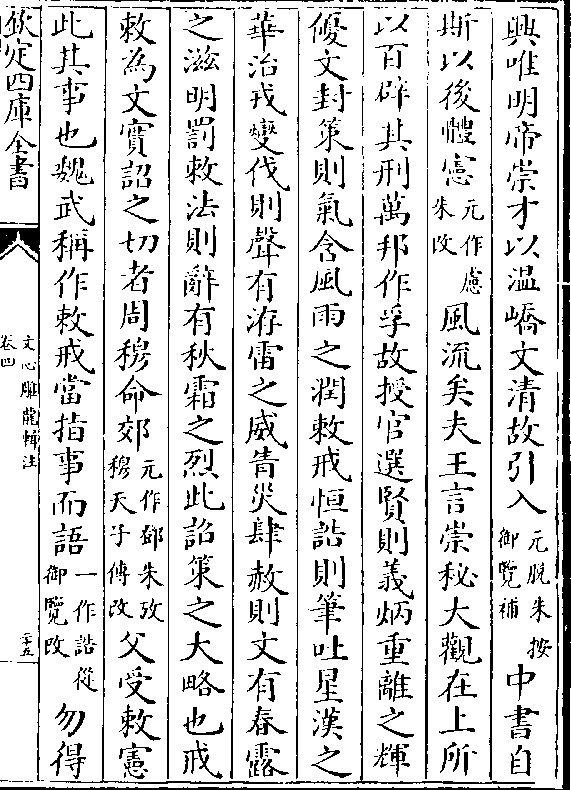 興唯明帝崇才以温嶠文清故引入元脱朱按御覽補中書自
斯以後體憲元作慮朱改風流矣夫王言崇秘大觀在上所
以百辟其刑萬邦作孚故授官選賢則義炳重離之輝
優文封策則氣含風雨之潤敕戒恒誥則筆吐星漢之
華治戎燮伐則聲有洊雷之威眚災肆赦則文有春露
之滋明罰敕法則辭有秋霜之烈此詔策之大略也戒
敕為文實詔之切者周穆命郊元作鄧朱攷穆天子傳改父受敕憲
此其事也魏武稱作敕戒當指事而語一作誥從御覽改勿得
欽定四庫全書
文心雕龍輯注
卷四
二十五